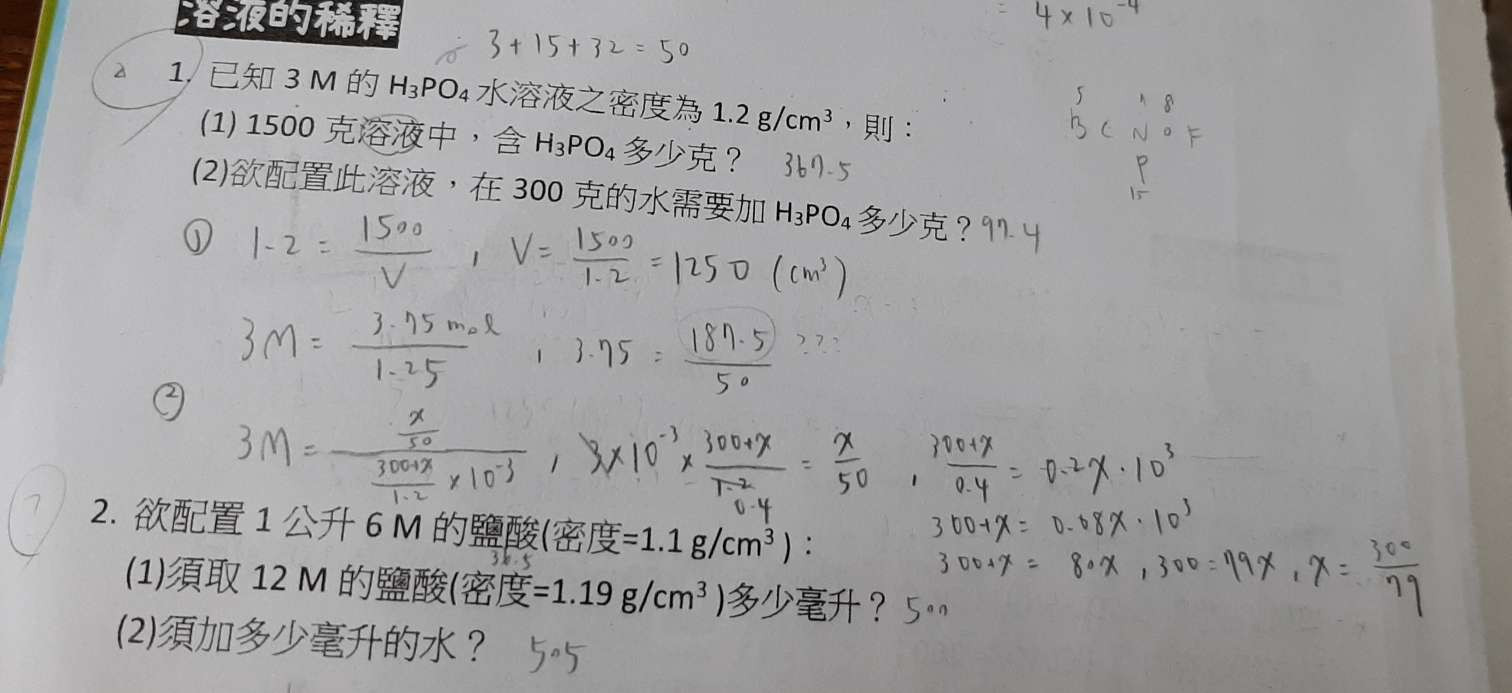 溶液的稀釋
= 4 × 10⁻⁴
3 + 15 + 32 = 50
1. 已知 3 M 的 H₃PO₄ 水溶液之密度為 1.2 g/cm³，則：
(1) 1500 克溶液中，含 H₃PO₄ 多少克？ 367.5
(2)欲配置此溶液，在 300 克的水需要加 H₃PO₄ 多少克？97.4
5 8
B C N O F
P
15
① 1.2 = 1500/V , V = 1500/1.2 = 1250 (cm³)
3M = 3.75 mol/1.25 , 3.75 = 187.5/50 ???
② 3M = (x/50)/((300+x)/1.2 × 10⁻³) , 3×10⁻³ × (300+x)/1.2 = x/50 , (300+x)/0.4 = 0.2x · 10³
0.4
300+x = 0.08x · 10³
300+x = 80x , 300 = 79x , x = 300/79
2. 欲配置 1 公升 6 M 的鹽酸(密度=1.1 g/cm³)：
36.5
(1)須取 12 M 的鹽酸(密度=1.19 g/cm³ )多少毫升？ 500
(2)須加多少毫升的水？ 505